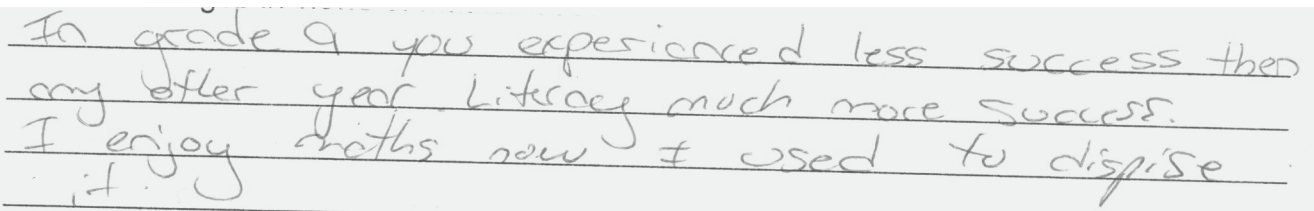 In grade 9 you experienced less success then
any other year. Literacy much more success.
I enjoy maths now I used to dispise
it.